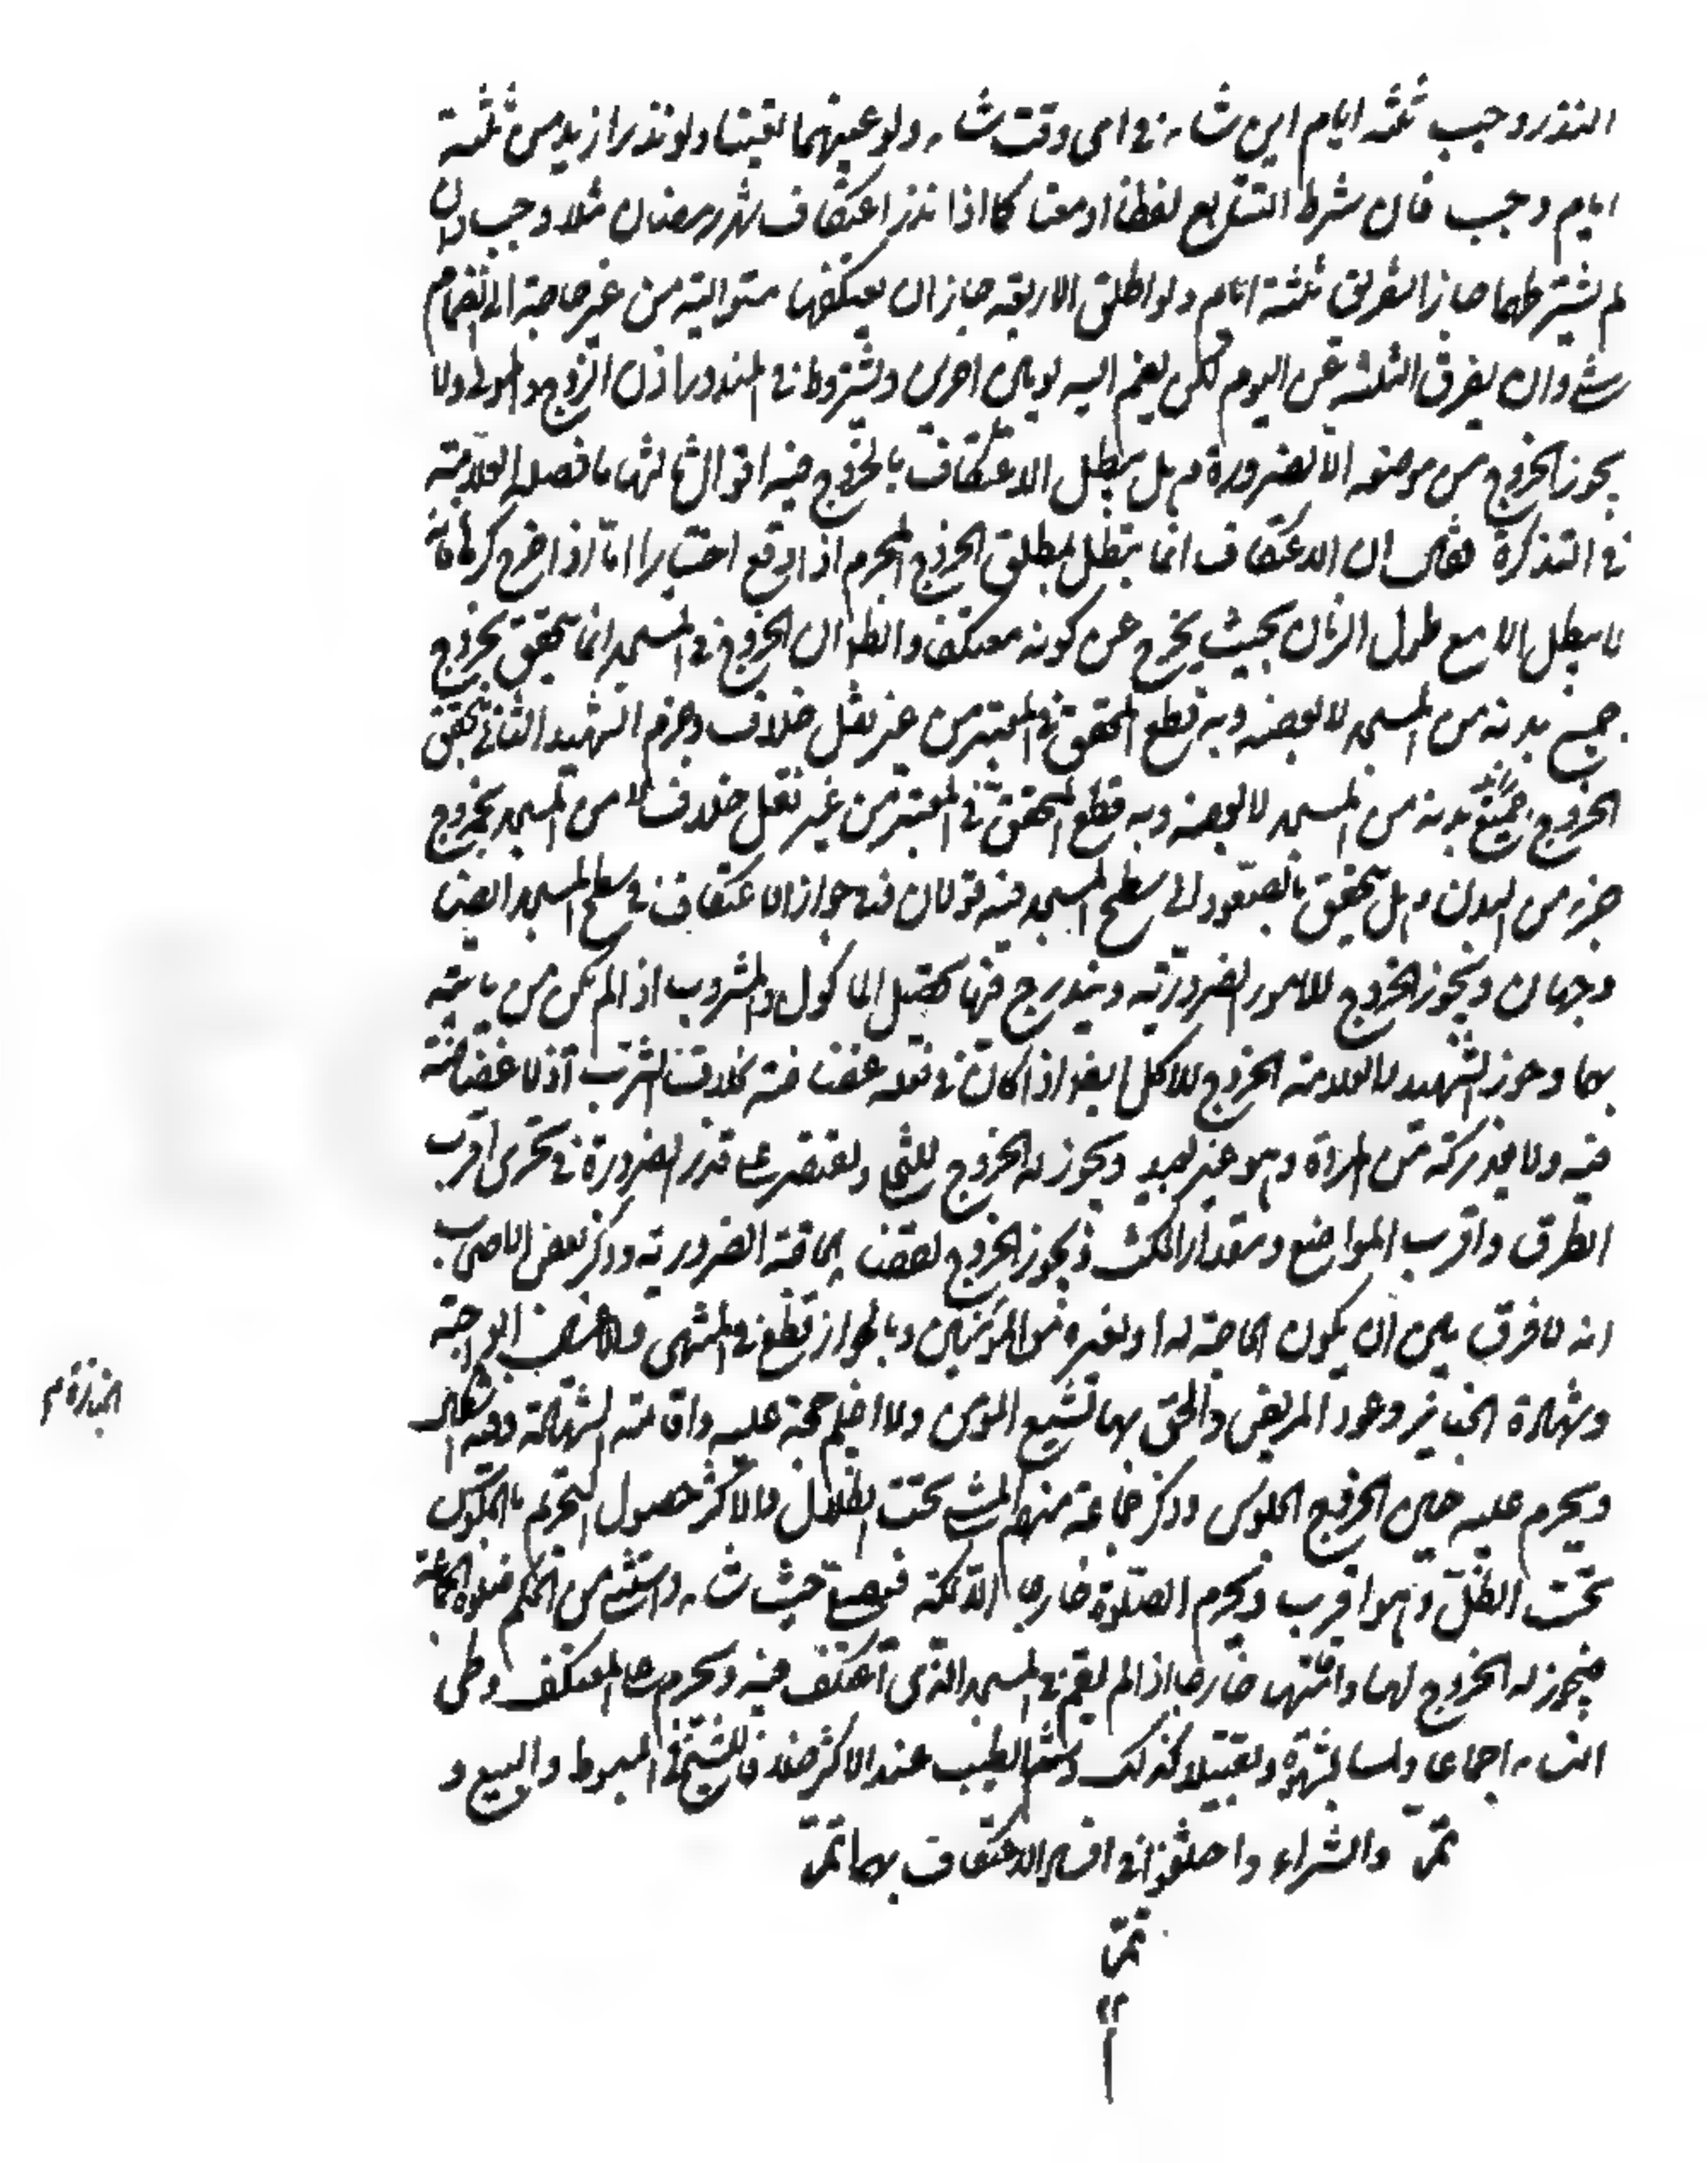 النذر وجب ثلثه ايام اين شاء في اى وقت شاء ولو عينهما تعينا ولو نذر ازيد من ثلثة
ايام وجب فان شرط التتابع لفظا او معنا كما اذا نذر اعتكاف شهر رمضان مثلا وجب وان
لم يشترطهما جاز التفريق ثلثة ثلثة ايام ولو اطلق الاربعة جاز ان يعتكفها متوالية من غير حاجة الى انضمام
شئ وان يفرق الثلثة عن اليوم لكن يضم اليه يومين اخرين ويشترط في المندوب اذن الزوج والمولى ولا
يجوز الخروج من موضعه الا لضرورة وهل يبطل الاعتكاف بالخروج فيه اقوال ثالثها ما فصله العلامة
في التذكرة فقال ان الاعتكاف انما يبطل بمطلق الخروج المحرم اذا وقع اختيارا اما اذا خرج كرها فانه
لا يبطل الا مع طول الزمان بحيث يخرج عن كونه معتكفا والظ ان الخروج في المسجد انما يتحقق بخروج
جميع بدنه من المسجد لا بعضه وبه قطع المحقق في المعتبر من غير نقل خلاف وجزم الشهيد الثاني بتحقق
الخروج جميع بدنه من المسجد لا بعضه وبه قطع المحقق في المعتبر من غير نقل خلاف لا من المسجد بخروج
جزء من البدن وهل يتحقق بالصعود الى سطح المسجد فيه قولان وفي جواز الاعتكاف في سطح المسجد ايضا
وجهان ويجوز الخروج للامور الضرورية ويندرج فيها تحصيل الماكول والمشروب اذا لم يكن من ياتيه
بهما وجوز الشهيد والعلامة الخروج للاكل ايضا اذا كان في فعله غضاضة بخلاف الشرب اذ لا غضاضة
فيه ولا يعد تركه من المراة وهو غير بعيد ويجوز له الخروج ويقتصر على قدر الضرورة في تحرى اقرب
الطرق واقرب المواضع ومقدار المكث ويجوز الخروج لقضاء الحاجة الضرورية وذكر بعض الاصحاب
انه لا فرق بين ان يكون الحاجة له او لغيره من المؤمنين وبالجواز قطع في المنتهى
وشهادة الجنايز وعود المريض والحق بها تشييع المؤمن واقامة الشهادة
الجنازة م
ويحرم عليه حين الخروج الجلوس وذكر جماعة منهم المشى تحت الظلال والاكثر حصول التحريم بالجلوس
تحت الظل وهو اقرب ويحرم الصلوة خارجا الا بمكة فيصلي حيث شاء واستثنى من الحكم صلوة الجماعة
فيجوز له الخروج لها واقامتها خارجا اذا لم يقم في المسجد الذى اعتكف فيه ويحرم على المعتكف وطى
النساء اجماعا ولمسا بشهوة وتقبيلا كذلك وشم الطيب عند الاكثر خلافا للشيخ في المبسوط والبيع و
تمت والشراء واختلفوا في افساد الاعتكاف بهما تمت
تمت